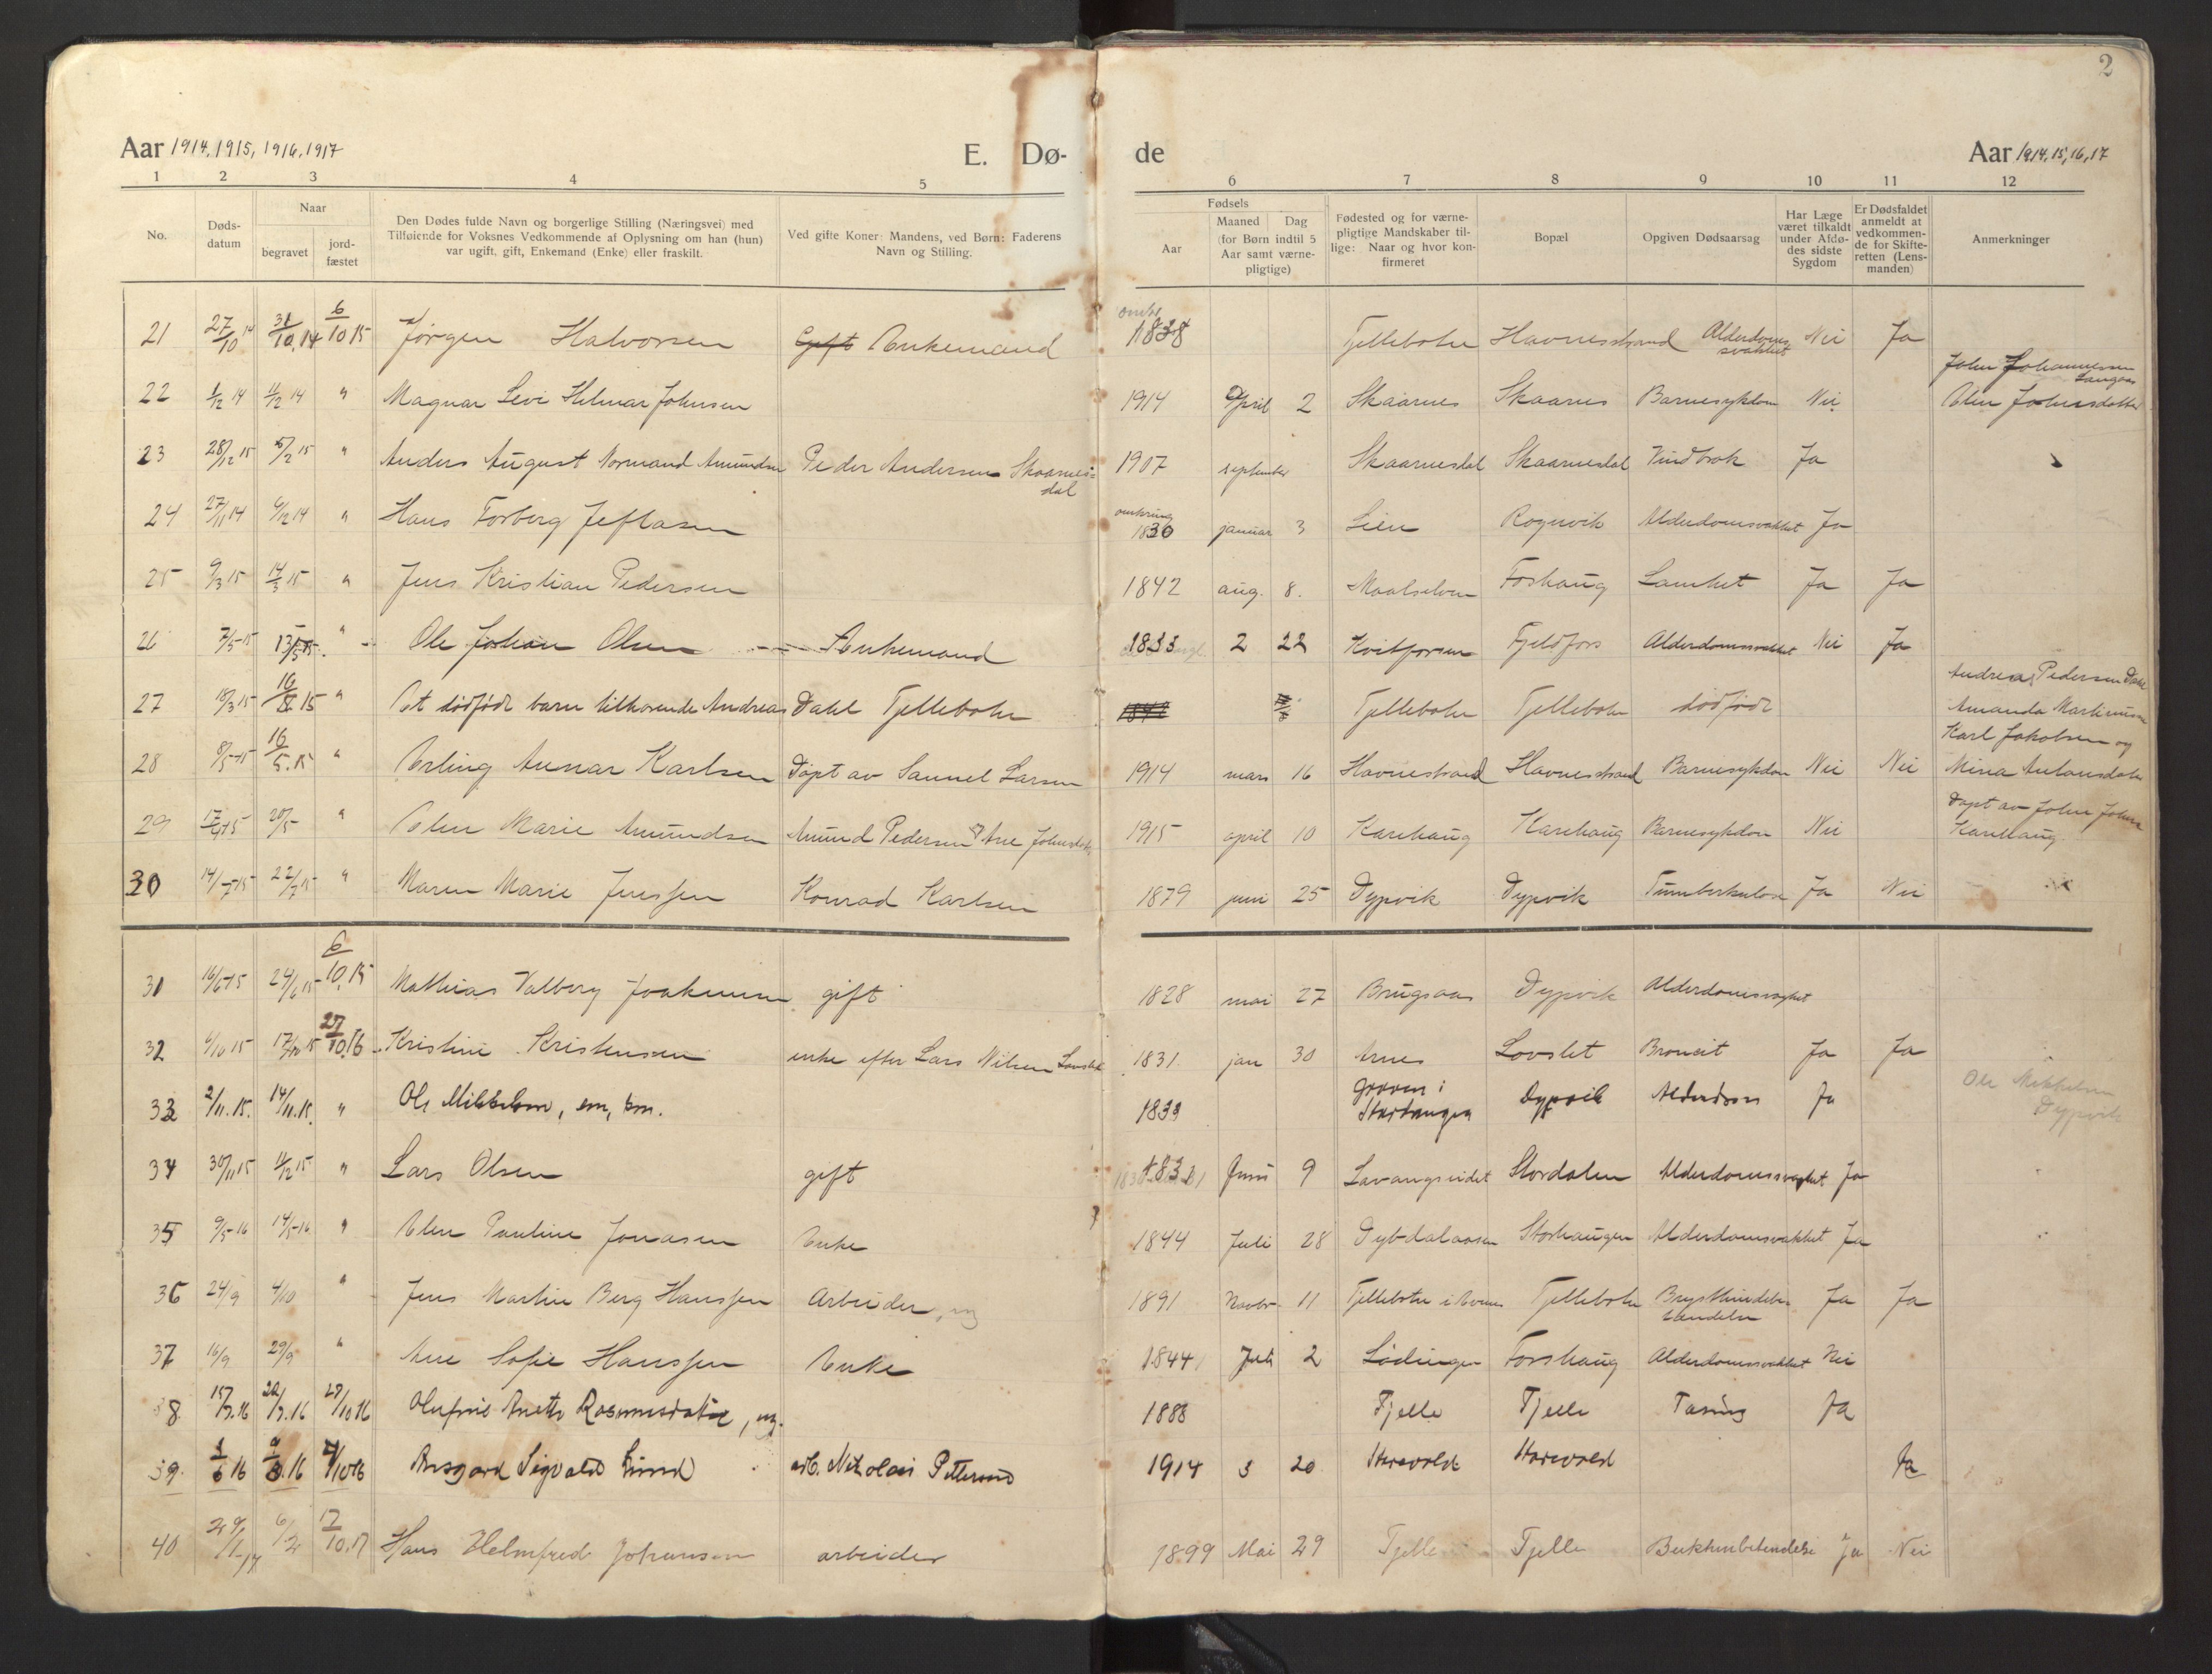 2
Aar 1914, 1915, 1916, 1917 E. Dø- de Aar 1914, 15, 16, 17
1 2 3 4 5 6 7 8 9 10 11 12
No.
Døds-
datum
Naar
begravet
jord-
fæstet
Den Dødes fulde Navn og borgerlige Stilling (Næringsvei) med
Tilføiende for Voksnes Vedkommende af Oplysning om han (hun)
var ugift, gift, Enkemand (Enke) eller fraskilt.
Ved gifte Koner: Mandens, ved Børn: Faderens
Navn og Stilling.
Fødsels
Aar
Maaned Dag
(for Børn indtil 5
Aar samt værne-
pligtige)
Fødested og for værne-
pligtige Mandskaber til-
lige: Naar og hvor kon-
firmeret
Bopæl
Opgiven Dødsaarsag
Har Læge
været tilkaldt
under Afdø-
des sidste
Sygdom
Er Dødsfaldet
anmeldt at
vedkommen-
de for Skifte-
retten (Lens-
manden)
Anmerkninger
21 27/10 14 31/10.14 6/10 15 Jørgen Halvorsen Gift Enkemand 1838 Tjellebotn Havnestrand Alderdoms svakhet Nei Ja
22 1/12 14 11/12 14 " Magnar Levi Helmar Johnsen 1914 April 2 Skaanes Skaanes Barnesykdom Nei John Johannessen Elen Johnsdotter
23 28/12 15 5/2 15 " Anders August Normand Amundsen Peder Andersen Skaanesdal 1907 september Skaarnesdal Skaarnesdal Vindbrok Ja
24 27/11 14 6/12 14 " Hans Forberg Jeftasen omkring 1830 januar 3 Lien Rognvik Alderdomsvakhet Ja
25 9/3 15 14/3 15 " Jens Kristian Pedersen 1842 aug. 8. Maalselven Foshaug Lamhet Ja Ja
26 7/5-15 13/5 15. " Ole Johan Olsen Enkemand 1833 2 22 Kvitforsen Fjeldfors Alderdomssvakhet Nei Ja
27 18/3 15 " Et dødfødt barn tilhørende Andreas Dahl Tjellebotn Tjellebotn Tjellebotn dødfødt Andreas Pedersen Dahl Amanda Martinusen
28 8/5-15 16/5.15 " Erling Annar Karlsen Døpt av Samuel Larsen 1914 mars 16 Havnestrand Havnestrand Barnesykdom Nei Nei Karl Jakobsen og Mina Antonsdatter
29 20/5 " Elen Marie Amundsen Amund Pedersen Ane Johnsdatter 1915 april 10 Karehaug Karehaug Barnesykdom Nei Døpt av John Johnsen Karehaug.
30 14/7-15 22/7 15 " Maren Marie Jenssen Konrad Karlsen 1879 juni 25 Dypvik Dypvik Tumberkulose Ja Nei
31 16/6-15 24/6 15 6/10.15 Mathias Valberg Joakimsen gift 1828 mai 27 Brugsaas Dypvik Alderdomsvaghet
32 4/10 15 17/10 15 27/10.16 Kristine Kristensen enke efter Lars Nilsen Lovslet 1831. jan 30 Arnes Lovslet Broncit Ja Ja
33 2/11.15. 14/11.15. " Ole Mikkelsen, em, 1839 Grovon i Stortangen Dypvik Alderdom Ja Ole Mikkelsen Dypvik
34 30/11 15 11/12 15 " Lars Olsen gift 1831 Juni 9 Lavangseidet Stordalen Alderdomssvaghet Ja
35 9/5-16 14/5-16 " Elen Pauline Jonasen Enke 1844 Juli 28 Dybdalaasen Storhaugen Alderdomsvakhet Ja
36 24/9 4/10 " Jens Martin Berg Hanssen Arbeider, ug 1891 Novbr. 11 Tjellebotn i Evenes Tjellebotn Brysthindebetændelse Ja Ja
37 16/9 29/9 " Ane Sofie Hanssen Enke 1844 Juli 2 Lødingen Forshaug Alderdomssvakhet Nei
38 15/3.16 22/3.16 27/10 16 Olufine Anette Rasmusdatter, ug. 1888 Tjelle Tjelle Tæring Ja
39. 1/6 16 27/10 16 Ansgard Sigvald Lund arb. Nikolai Pettersen 1914 3 20 Storevold Storevold Ja
40 6/2 17/10.17 Hans Helmfred Johansen arbeider 1899 Mai 29 Tjelle Tjelle Bukhinbetendelse Ja Nei